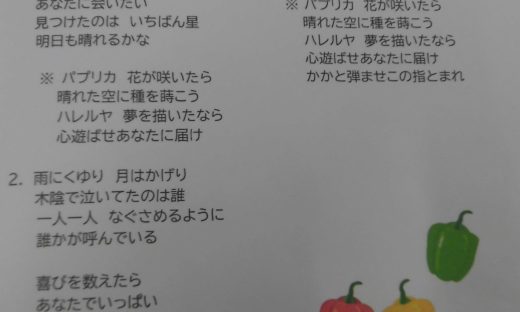 あなたに会いたい
見つけたのは いちばん星
明日も晴れるかな
※ パプリカ 花が咲いたら
晴れた空に種を蒔こう
ハレルヤ 夢を描いたなら
心遊ばせあなたに届け
2. 雨にくゆり 月はかげり
木陰で泣いてたのは誰
一人一人 なぐさめるように
誰かが呼んでいる
喜びを数えたら
あなたでいっぱい
※ パプリカ 花が咲いたら
晴れた空に種を蒔こう
ハレルヤ 夢を描いたなら
心遊ばせあなたに届け
かかと弾ませこの指とまれ